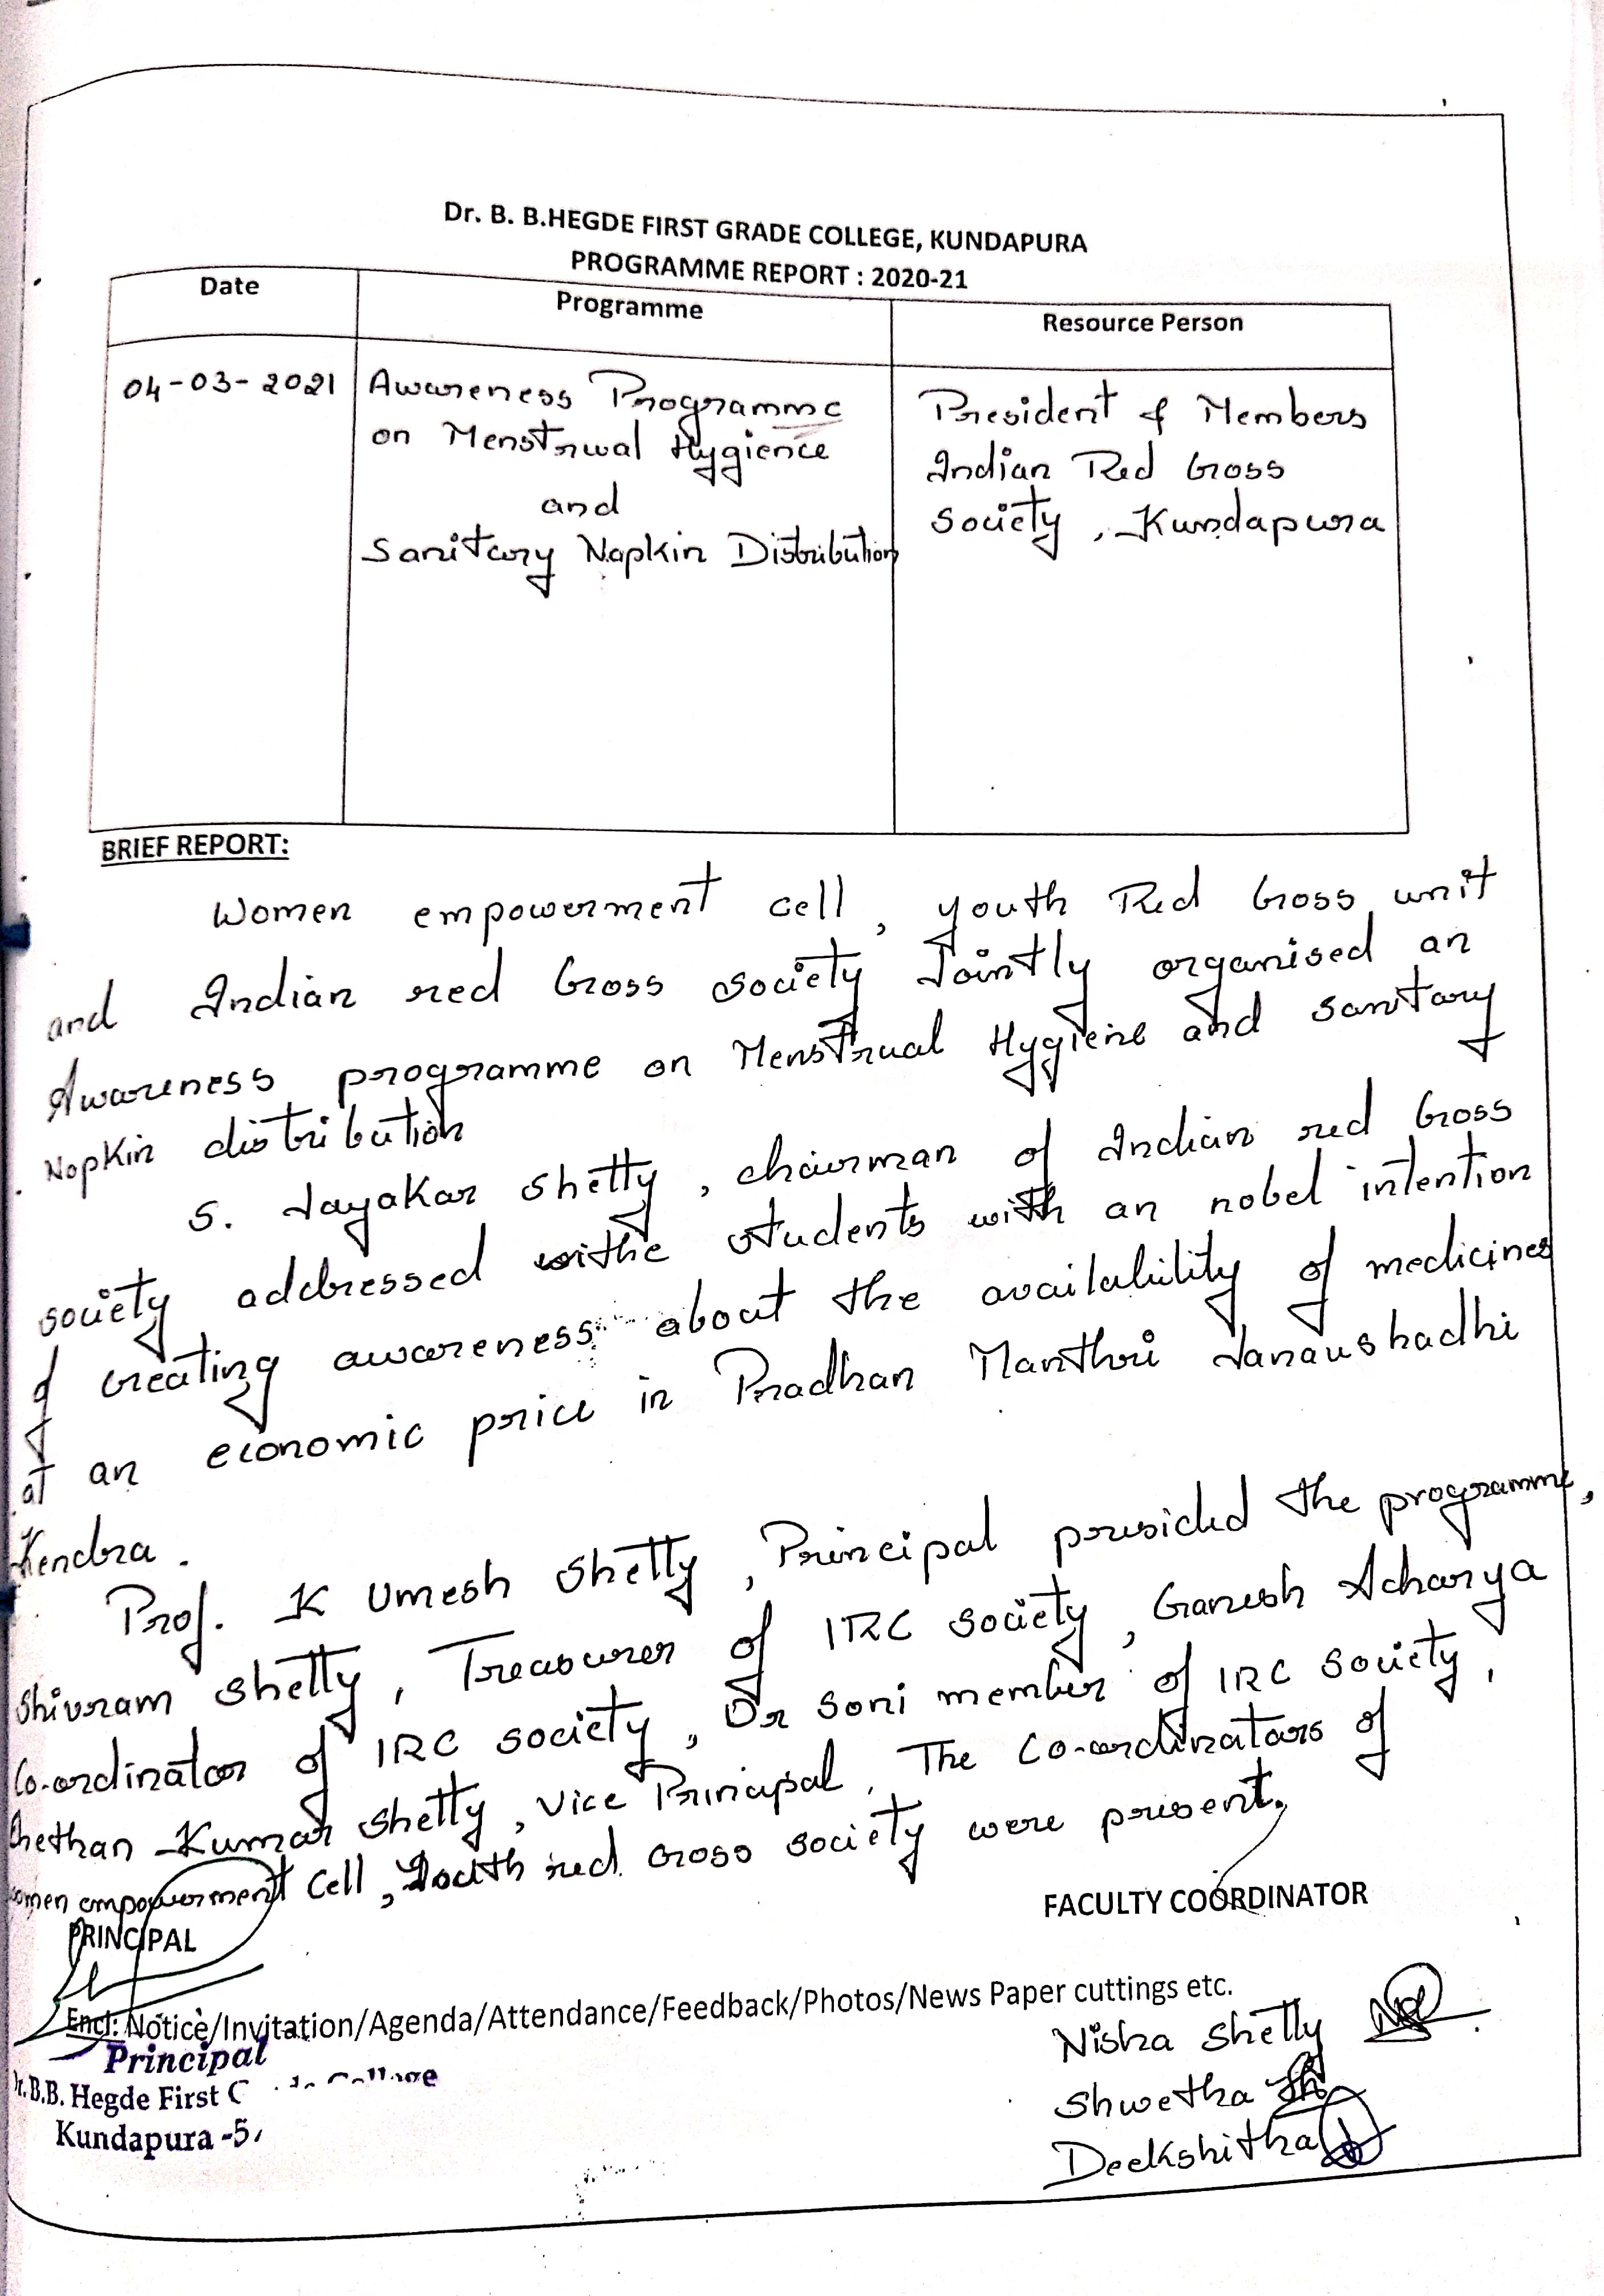 Dr. B. B.HEGDE FIRST GRADE COLLEGE, KUNDAPURA
PROGRAMME REPORT : 2020-21
Date
Programme
Resource Person
04-03-2021
Awareness Programme
on Menstrual Hygience
and
Sanitary Napkin Distribution
President & Members
Indian Red Cross
Society, Kundapura
BRIEF REPORT:
Women empowerment cell, youth Red Cross unit
and Indian red Cross society Jointly organised an
Awareness programme on Menstrual Hygiene and sanitary
Napkin distribution
S. Jayakar Shetty, chairman of Indian red Cross
society addressed the students with an nobel intention
of creating awareness about the availability of medicines
at an economic price in Pradhan Manthri Janaushadhi
Kendra.
Prof. K Umesh Shetty, Principal presided the programme,
Shivram Shetty, Treasurer of IRC society, Ganesh Acharya
Co-ordinator of IRC society, Dr Soni member of IRC society,
Chethan Kumar Shetty, Vice Principal, The Co-ordinators of
women empowerment Cell, Youth red cross society were present.
PRINCIPAL
FACULTY COORDINATOR
Encl: Notice/Invitation/Agenda/Attendance/Feedback/Photos/News Paper cuttings etc.
Principal
Dr.B.B. Hegde First
Kundapura -5
Nisha Shetty
Shwetha
Deekshitha